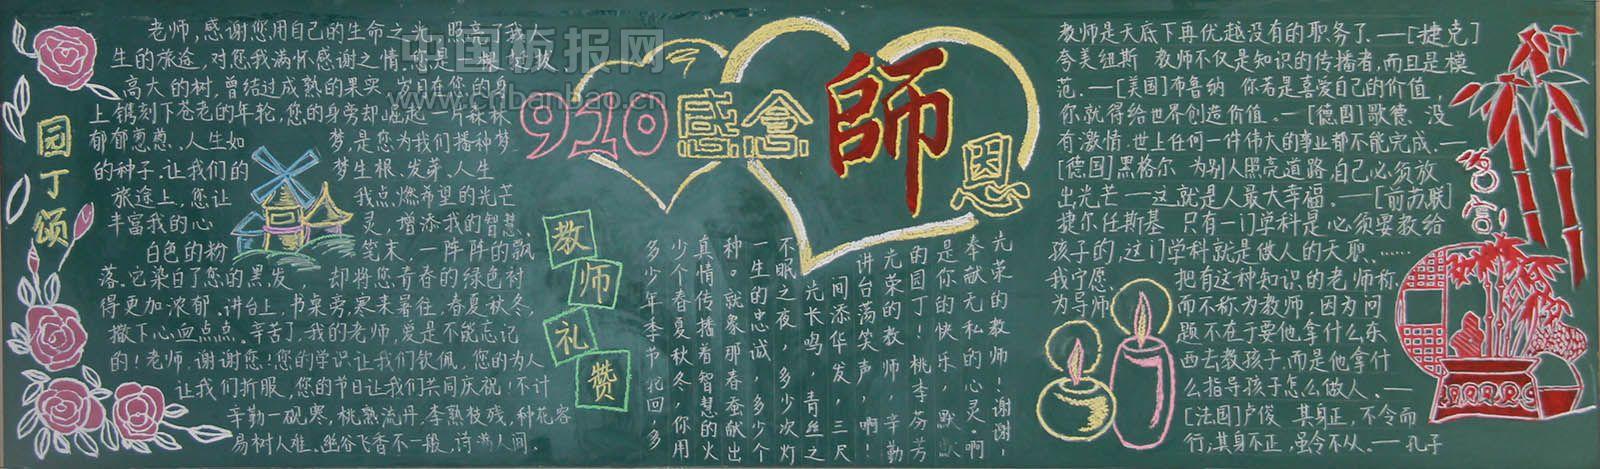 园丁颂
老师,感谢您用自己的生命之光,照亮了我人
生的旅途,对您我满怀感谢之情。您是一棵挺拔
高大的树,曾结过成熟的果实,岁月在您的身
上镌刻下苍老的年轮,您的身旁却崛起一片森林
郁郁葱葱。人生如梦,是您为我们播种梦
的种子,让我们的梦生根、发芽、人生
旅途上,您让我点燃希望的光芒
丰富我的心灵,增添我的智慧、
白色的粉笔末,一阵阵的飘
落。它染白了您的黑发,却将您青春的绿色衬
得更加浓郁、讲台上,书桌旁,寒来暑往,春夏秋冬,
撒下心血点点。辛苦了,我的老师,爱是不能忘记
的!老师,谢谢您!您的学识让我们钦佩,您的为人
让我们折服,您的节日让我们共同庆祝!不计
辛勤一砚寒,桃熟流丹,李熟枝残,种花容
易树人难。幽谷飞香不一般,诗满人间。
中国板报网
www.cnbanbao.cn
910感念師恩
教师礼赞
光荣的教师!谢谢!
奉献无私的心灵。啊,
是你们的快乐,默默
的园丁!桃李芬芳
光荣的教师,辛勤
讲台荡笑声,啊!
间添华发,三尺
光长鸣,青丝之
不眠之夜,多少次灯
一生的忠诚,多少个
种。就象那春蚕献出
真情传播着智慧的火
少个春夏秋冬,你用
多少年季节轮回,多
教师是天底下再优越没有的职务了.—[捷克]
夸美纽斯 教师不仅是知识的传播者,而且是模
范.—[美国]布鲁纳 你若是喜爱自己的价值,
你就得给世界创造价值.—[德国]歌德、没
有激情.世上任何一件伟大的事业都不能完成.—
[德国]黑格尔 为别人照亮道路,自己必须放
出光芒—这就是人最大幸福.—[前苏联]
捷尔任斯基 只有一门学科是必须要教给
孩子的,这门学科就是做人的天职……
我宁愿、把有这种知识的老师称
为导师而不称为教师,因为问
题不在于要他拿什么东
西去教孩子,而是他拿什
么指导孩子怎么做人.—
[法国]卢俊 其身正,不令而
行;其身不正,虽令不从.—孔子
名言!